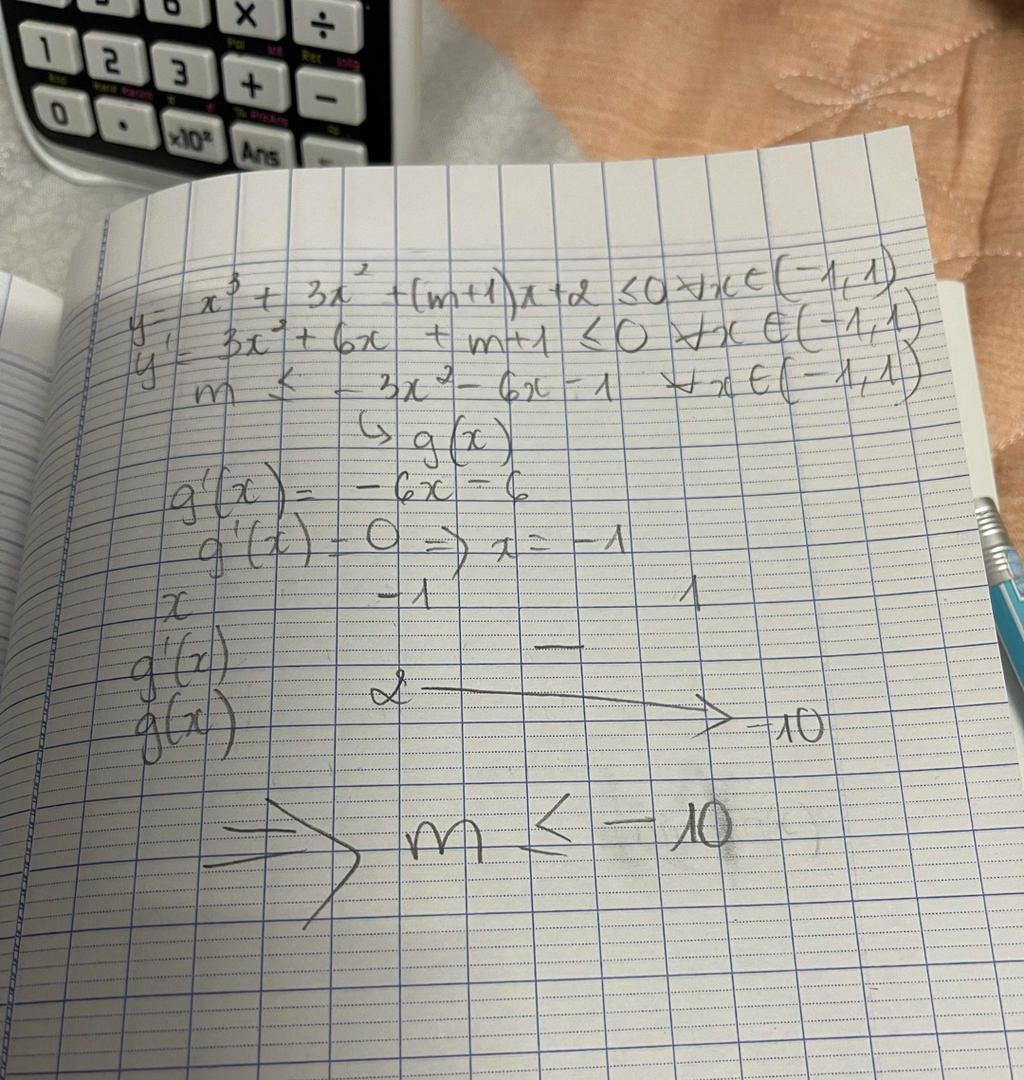 6 × ÷
1 2 3 + −
Pol Int Rec Intg
0 . ×10ˣ Ans =
y = x³ + 3x² + (m+1)x + 2 ≤ 0 ∀x ∈ (-1,1)
y' = 3x² + 6x + m+1 ≤ 0 ∀x ∈ (-1,1)
m ≤ -3x² - 6x - 1 ∀x ∈ (-1,1)
↳ g(x)
g'(x) = -6x - 6
g'(x) = 0 => x = -1
x -1 1
g'(x) −
g(x) 2 → -10
=> m ≤ -10